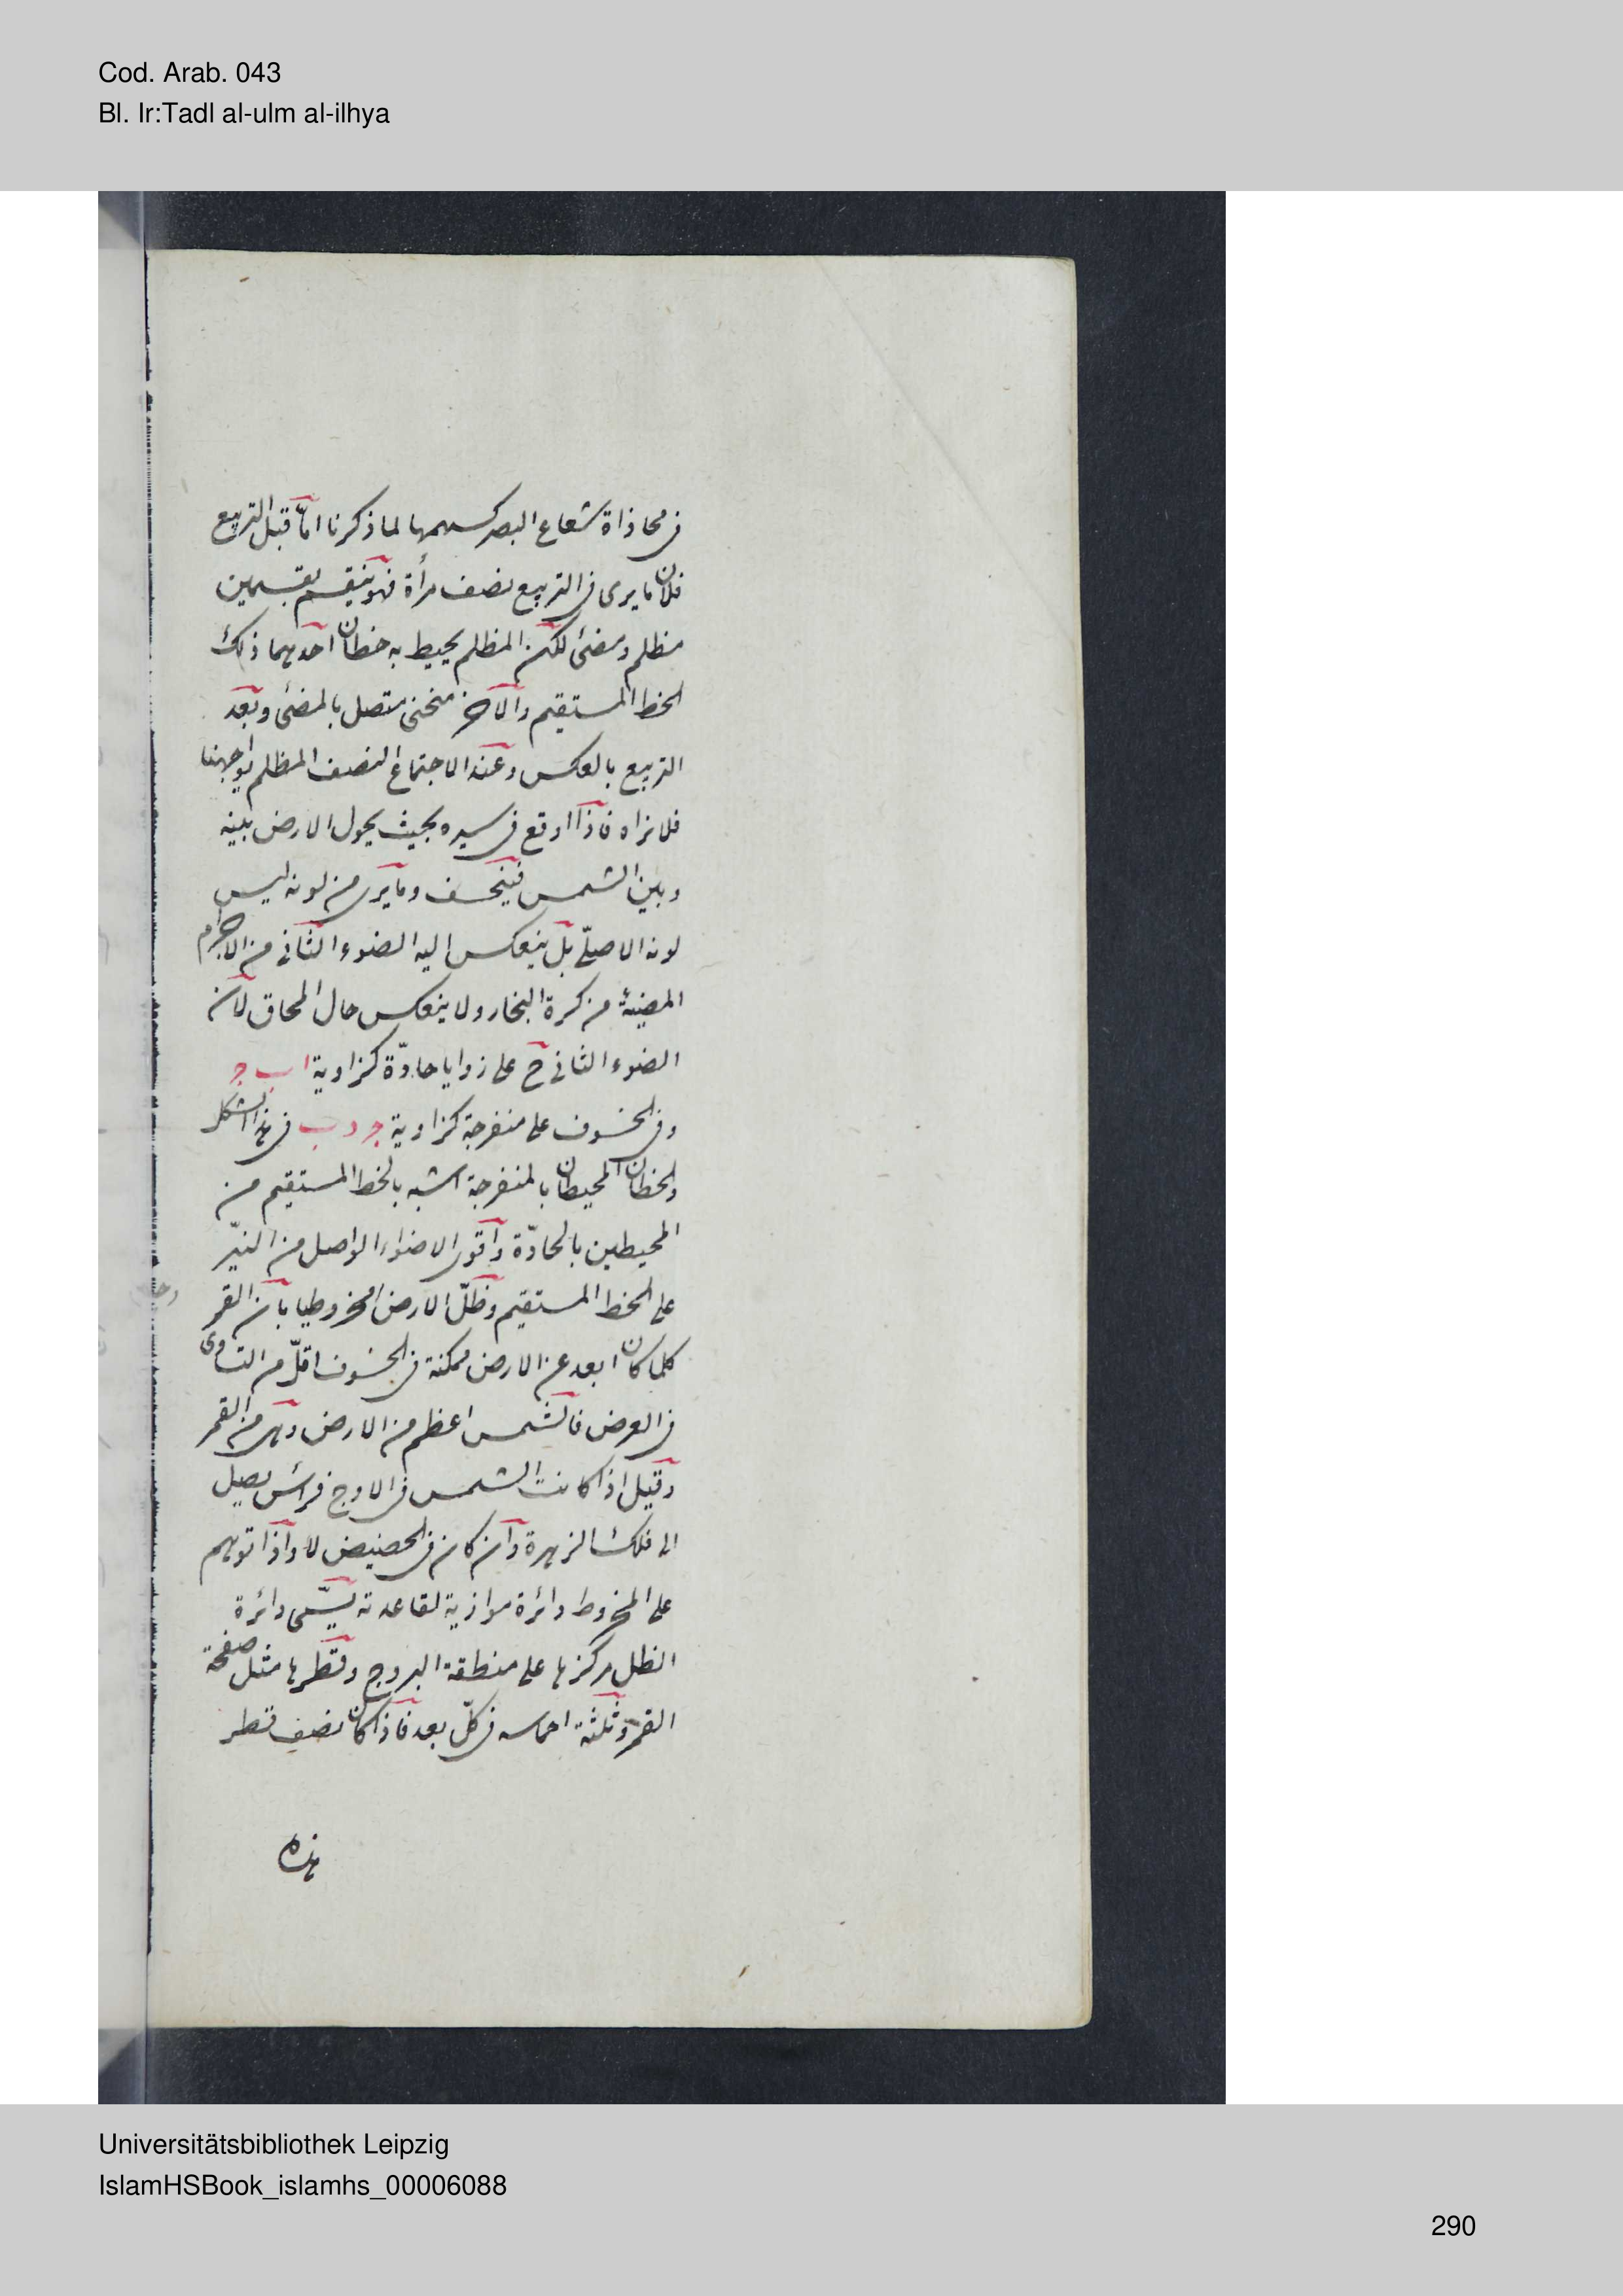 Cod. Arab. 043
Bl. Ir:Tadl al-ulm al-ilhya
فى محاذاة شعاع البصر كسهمها لما ذكرنا امّا قبل التربيع
فلان ما يرى فى التربيع نصف مرأة فهو ينقسم بقسمين
مظلم ومضئ لكن المظلم يحيط به خطان احدهما ذلك
الخط المستقيم والآخر منحنى متصل بالمضئ وبعد
التربيع بالعكس وعند الاجتماع النصف المظلم يواجهنا
فلا نراه فاذا وقع فى سيره بحيث يحول الارض بينه
وبين الشمس فينخسف وما يرى من لونه ليس
لونه الاصلّى بل ينعكس اليه الضوء الثانى من الاجرام
المضيئة من كرة البخار ولا ينعكس حال المحاق لان
الضوء الثانى ح على زوايا حادّة كزاوية ا ب ج
وفى الخسوف على منفرجة كزاوية ج د ب فى هذا الشكل
والخطان المحيطان بالمنفرجة اشبه بالخط المستقيم من
المحيطين بالحادّة واقوى الاضواء الواصل من النيّر
على الخط المستقيم وظلّ الارض مخروطيا بان القمر
كلما كان ابعد عن الارض مكثه فى الخسوف اقلّ من التساوى
فى العرض فالشمس اعظم من الارض وهى من القمر
وقيل اذا كانت الشمس فى الاوج فرأس يصل
الى فلك الزهرة وان كان فى الحضيض لا واذا توهم
على المخروط دائرة موازية لقاعدته يسّمى دائرة
الظل مركزها على منطقة البروج وقطرها مثل صفحة
القمر وثلثة اخماسه فى كلّ بعد فاذا كان نصف قطر
هذه
Universitätsbibliothek Leipzig
IslamHSBook_islamhs_00006088
290